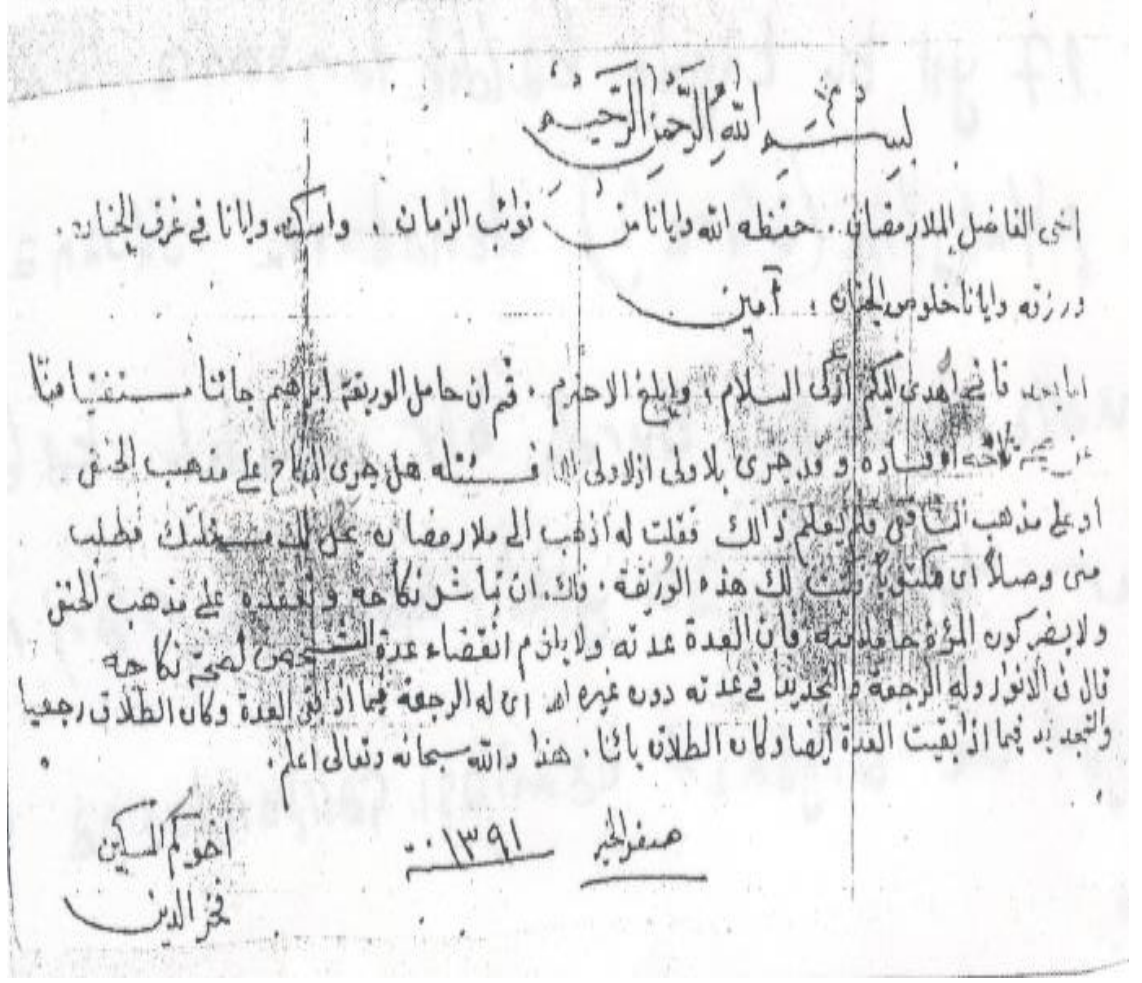 بِسْمِ اللهِ الرَّحْمٰنِ الرَّحِيْمِ
اخى الفاضل الملا رمضان . حفظه الله وايانا من نوائب الزمان . واسكنه وايانا في غرف الجنان .
ورزقه وايانا خلوص الجنان . آمين
اما بعد فانى اهدى اليكم أزكى السلام ، وابلغ الاحترم . ثم ان حامل الوريقة ابراهم جائنا مستفتيا منّا
وقد جرى فسئلته هل جرى النكاح على مذهب الحنفى
او على مذهب الشافعى فلم يعلم ذالك فقلت له اذهب الى ملا رمضان يحل لك فطلب
منى وصلاً اى مكتوباً كتبت لك هذه الوريقة . فلك ان تباشر نكاحه وتعقده على مذهب الحنفى
ولا يضر كون المرؤة حاملا منه فان العدة عدته ولا يلزم انقضاء عدة الشخص لصحة نكاحه
قال فى الانوار وله الرجعة والتجديد فى عدته دون غيره اهـ اى له الرجعة فيما اذا بقى العدة وكان الطلاق رجعيا
والتجديد فيما اذا بقيت العدة ايضا وكان الطلاق بائنا . هذا والله سبحانه وتعالى اعلم .
صفر الخير ١٣٩١ سنة
اخوكم المسكين
فخر الدين